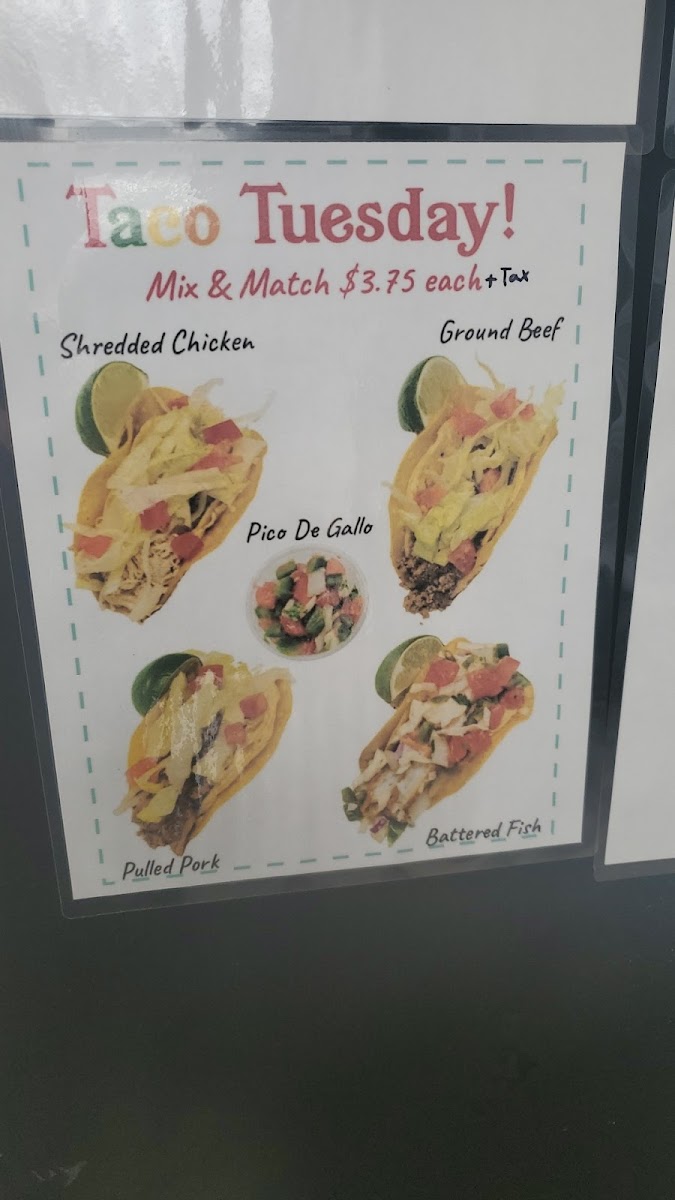 Taco Tuesday!
Mix & Match $3.75 each + Tax
Shredded Chicken
Ground Beef
Pico De Gallo
Pulled Pork
Battered Fish